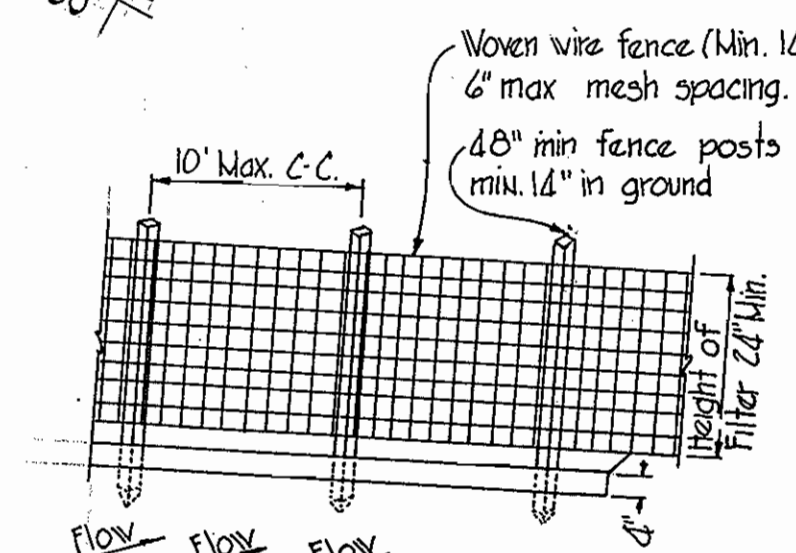 Woven wire fence (Min. 14
6" max mesh spacing.
48" min fence posts
min. 14" in ground
10' Max. C-C.
Height of
Filter 24" Min.
4"
Flow
Flow
Flow